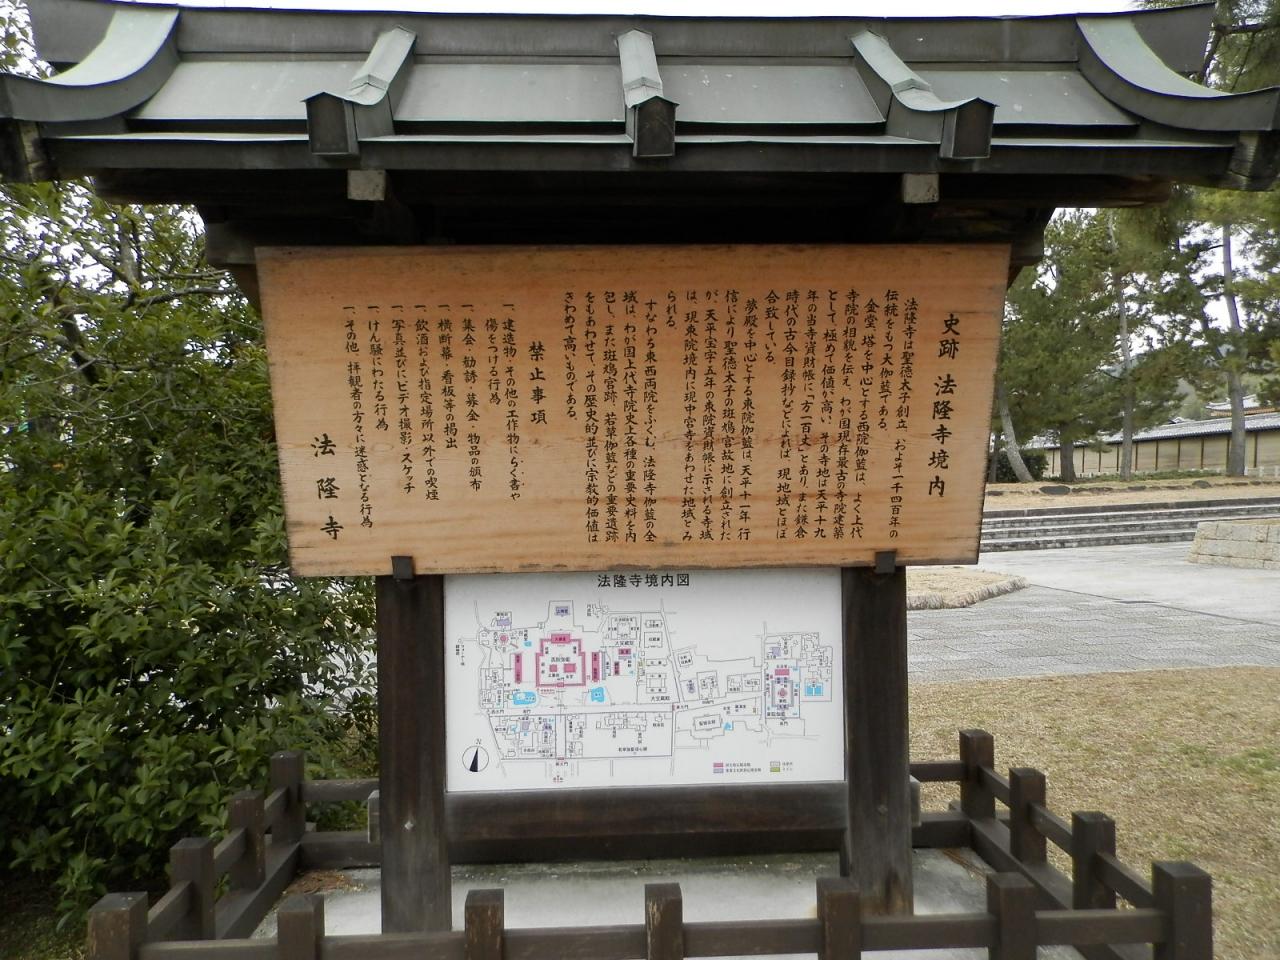 史跡 法隆寺境内
法隆寺は聖徳太子創立、およそ一千四百年の
伝統をもつ大伽藍である。
金堂、塔を中心とする西院伽藍は、よく上代
寺院の相貌を伝え、わが国現存最古の寺院建築
として極めて価値が高い。その寺地は天平十九
年の当寺資財帳に「方一百丈」とあり、また鎌倉
時代の古今目録抄などによれば、現地域とほぼ
合致している。
夢殿を中心とする東院伽藍は、天平十一年、行
信により聖徳太子の斑鳩宮故地に創立された
が、天平宝字五年の東院資財帳に示される寺域
は、現東院境内に現中宮寺をあわせた地域とみ
られる。
すなわち東西両院をふくむ、法隆寺伽藍の全
域は、わが国上代寺院史上各種の重要史料を内
包し、また斑鳩宮跡、若草伽藍などの重要遺跡
をもあわせて、その歴史的並びに宗教的価値は
きわめて高いものである。
禁止事項
一、建造物・その他の工作物にらく書や
傷をつける行為
一、集会・勧誘・募金・物品の頒布
一、横断幕・看板等の掲出
一、飲酒および指定場所以外での喫煙
一、写真並びにビデオ撮影・スケッチ
一、けん騒にわたる行為
一、その他、拝観者の方々に迷惑となる行為
法隆寺
法隆寺境内図
大宝蔵殿
西院伽藍
N